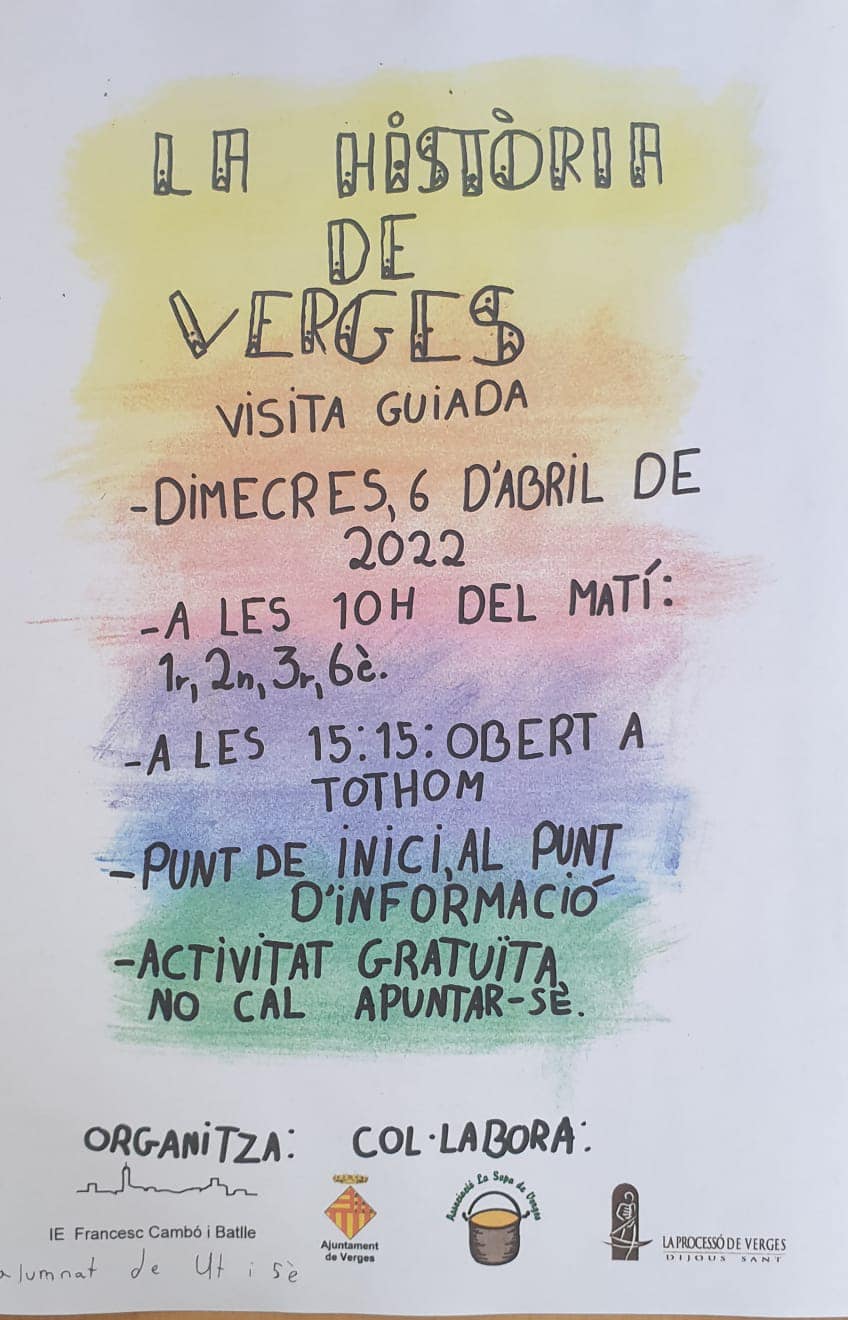 LA HISTÒRIA
DE
VERGES
VISITA GUIADA
-DIMECRES, 6 D'ABRIL DE
2022
-A LES 10H DEL MATÍ:
1r, 2n, 3r, 6è.
-A LES 15:15: OBERT A
TOTHOM
-PUNT DE INICI, AL PUNT
D'INFORMACIÓ
-ACTIVITAT GRATUÏTA
NO CAL APUNTAR-SÈ.
ORGANITZA: COL·LABORA:
IE Francesc Cambó i Batlle
alumnat de 4t i 5è
Ajuntament
de Verges
Associació La Sopa de Verges
LA PROCESSÓ DE VERGES
DIJOUS SANT